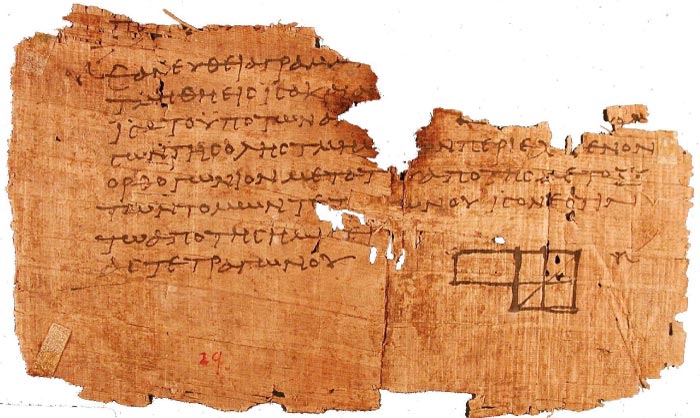 ΕΑΝΕΥΘΕΙΑΓΡΑΜΜ
ΤΜΗΘΗΕΙϹΙϹΑΚΑΙΑ
ΙϹΑΤΟΥΠΟΤΩΝΑ
ϹΩΝΤΗϹΟΛΗϹΤΜΗ ΩΝΠΕΡΙΕΧ ΜΕΝΟΝ
ΟΡΘΟΓΩΝΙΟΝΜΕΤΑΤ ΑΠΟΤΗϹΜΕΤΟΞΥ
ΤΩΝΤΟΜΩΝΤΕΤ ΩΝΟΥΙϹΟΝΕϹΤΙΝ
ΤΩΑΠΟΤΗϹΗΜΙϹ
ΑϹΤΕΤΡΑΓΩΝΟΥ
29